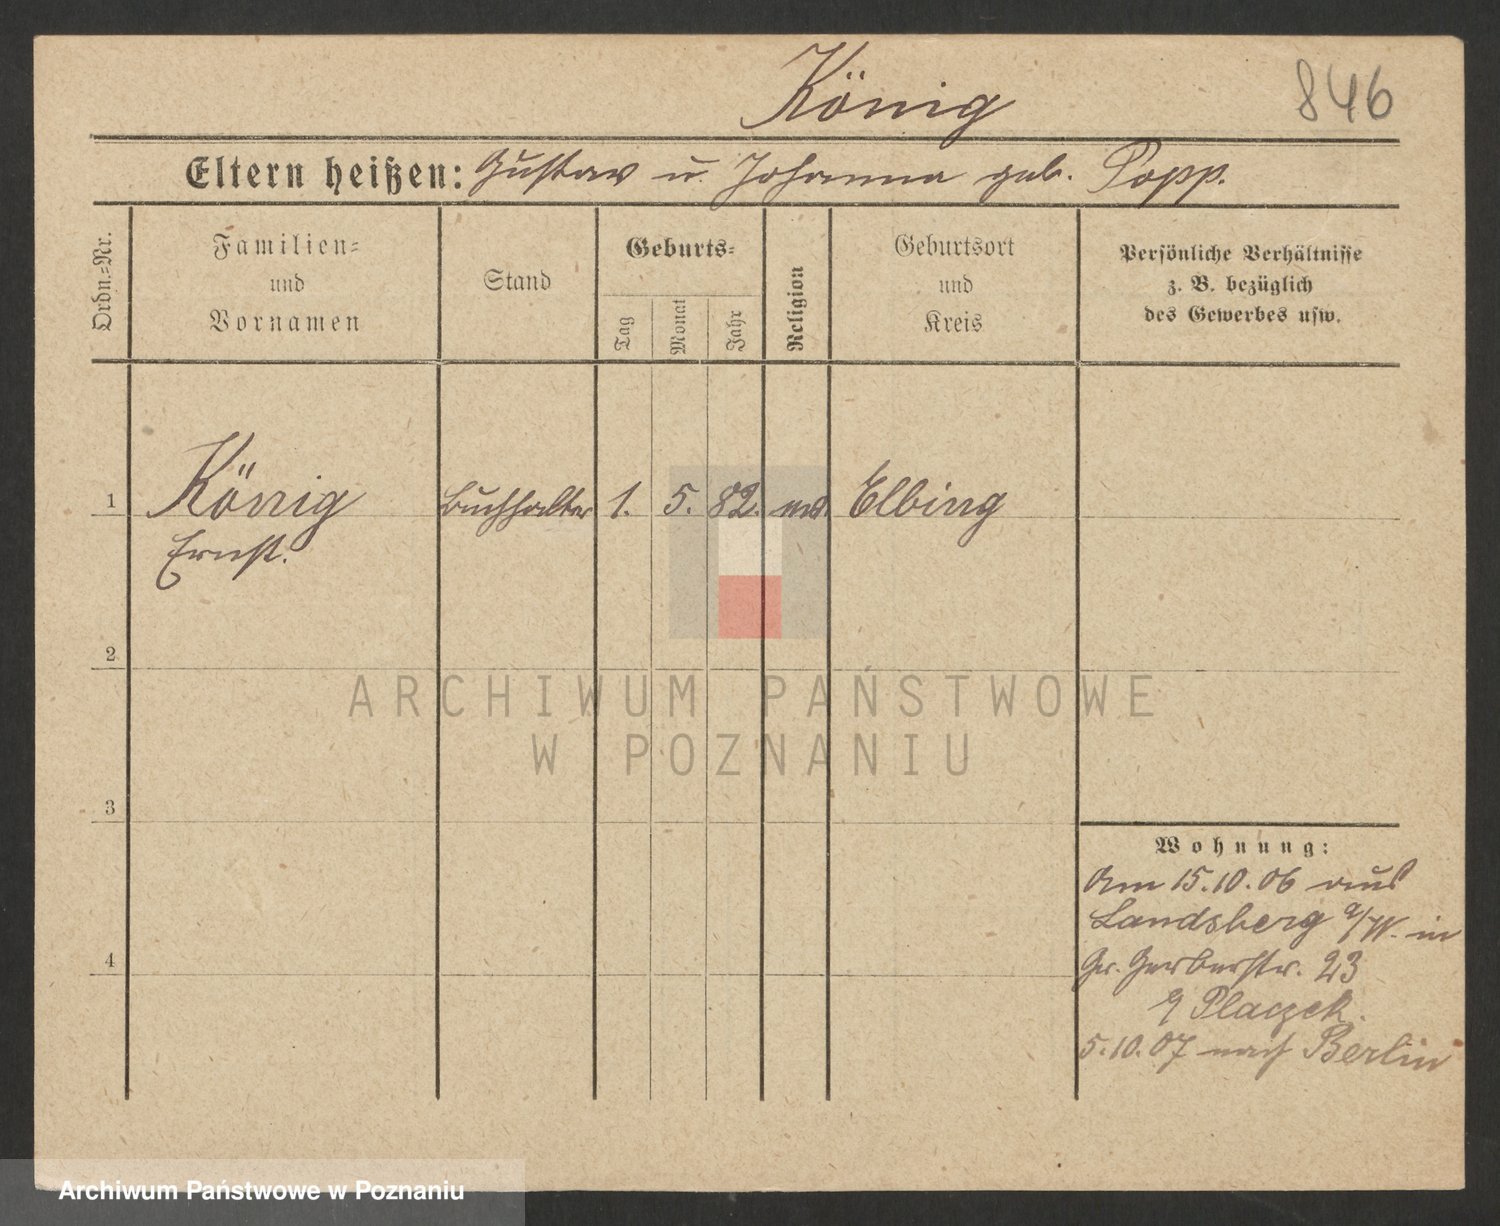 König
846
Eltern heißen: Gustav u. Johanna geb. Popp.
Ordn.=Nr.
Familien=
und
Vornamen
Stand
Geburts=
Tag
Monat
Jahr
Religion
Geburtsort
und
Kreis
Persönliche Verhältnisse
z. B. bezüglich
des Gewerbes usw.
1 König Buchhalter 1. 5. 82. Elbing
Ernst.
2
3
4
Wohnung:
Am 15.10.06 aus
Landsberg a/W. in
Gr. Gerberstr. 23
Placzek.
5.10.07 nach Berlin
ARCHIWUM PAŃSTWOWE
W POZNANIU
Archiwum Państwowe w Poznaniu